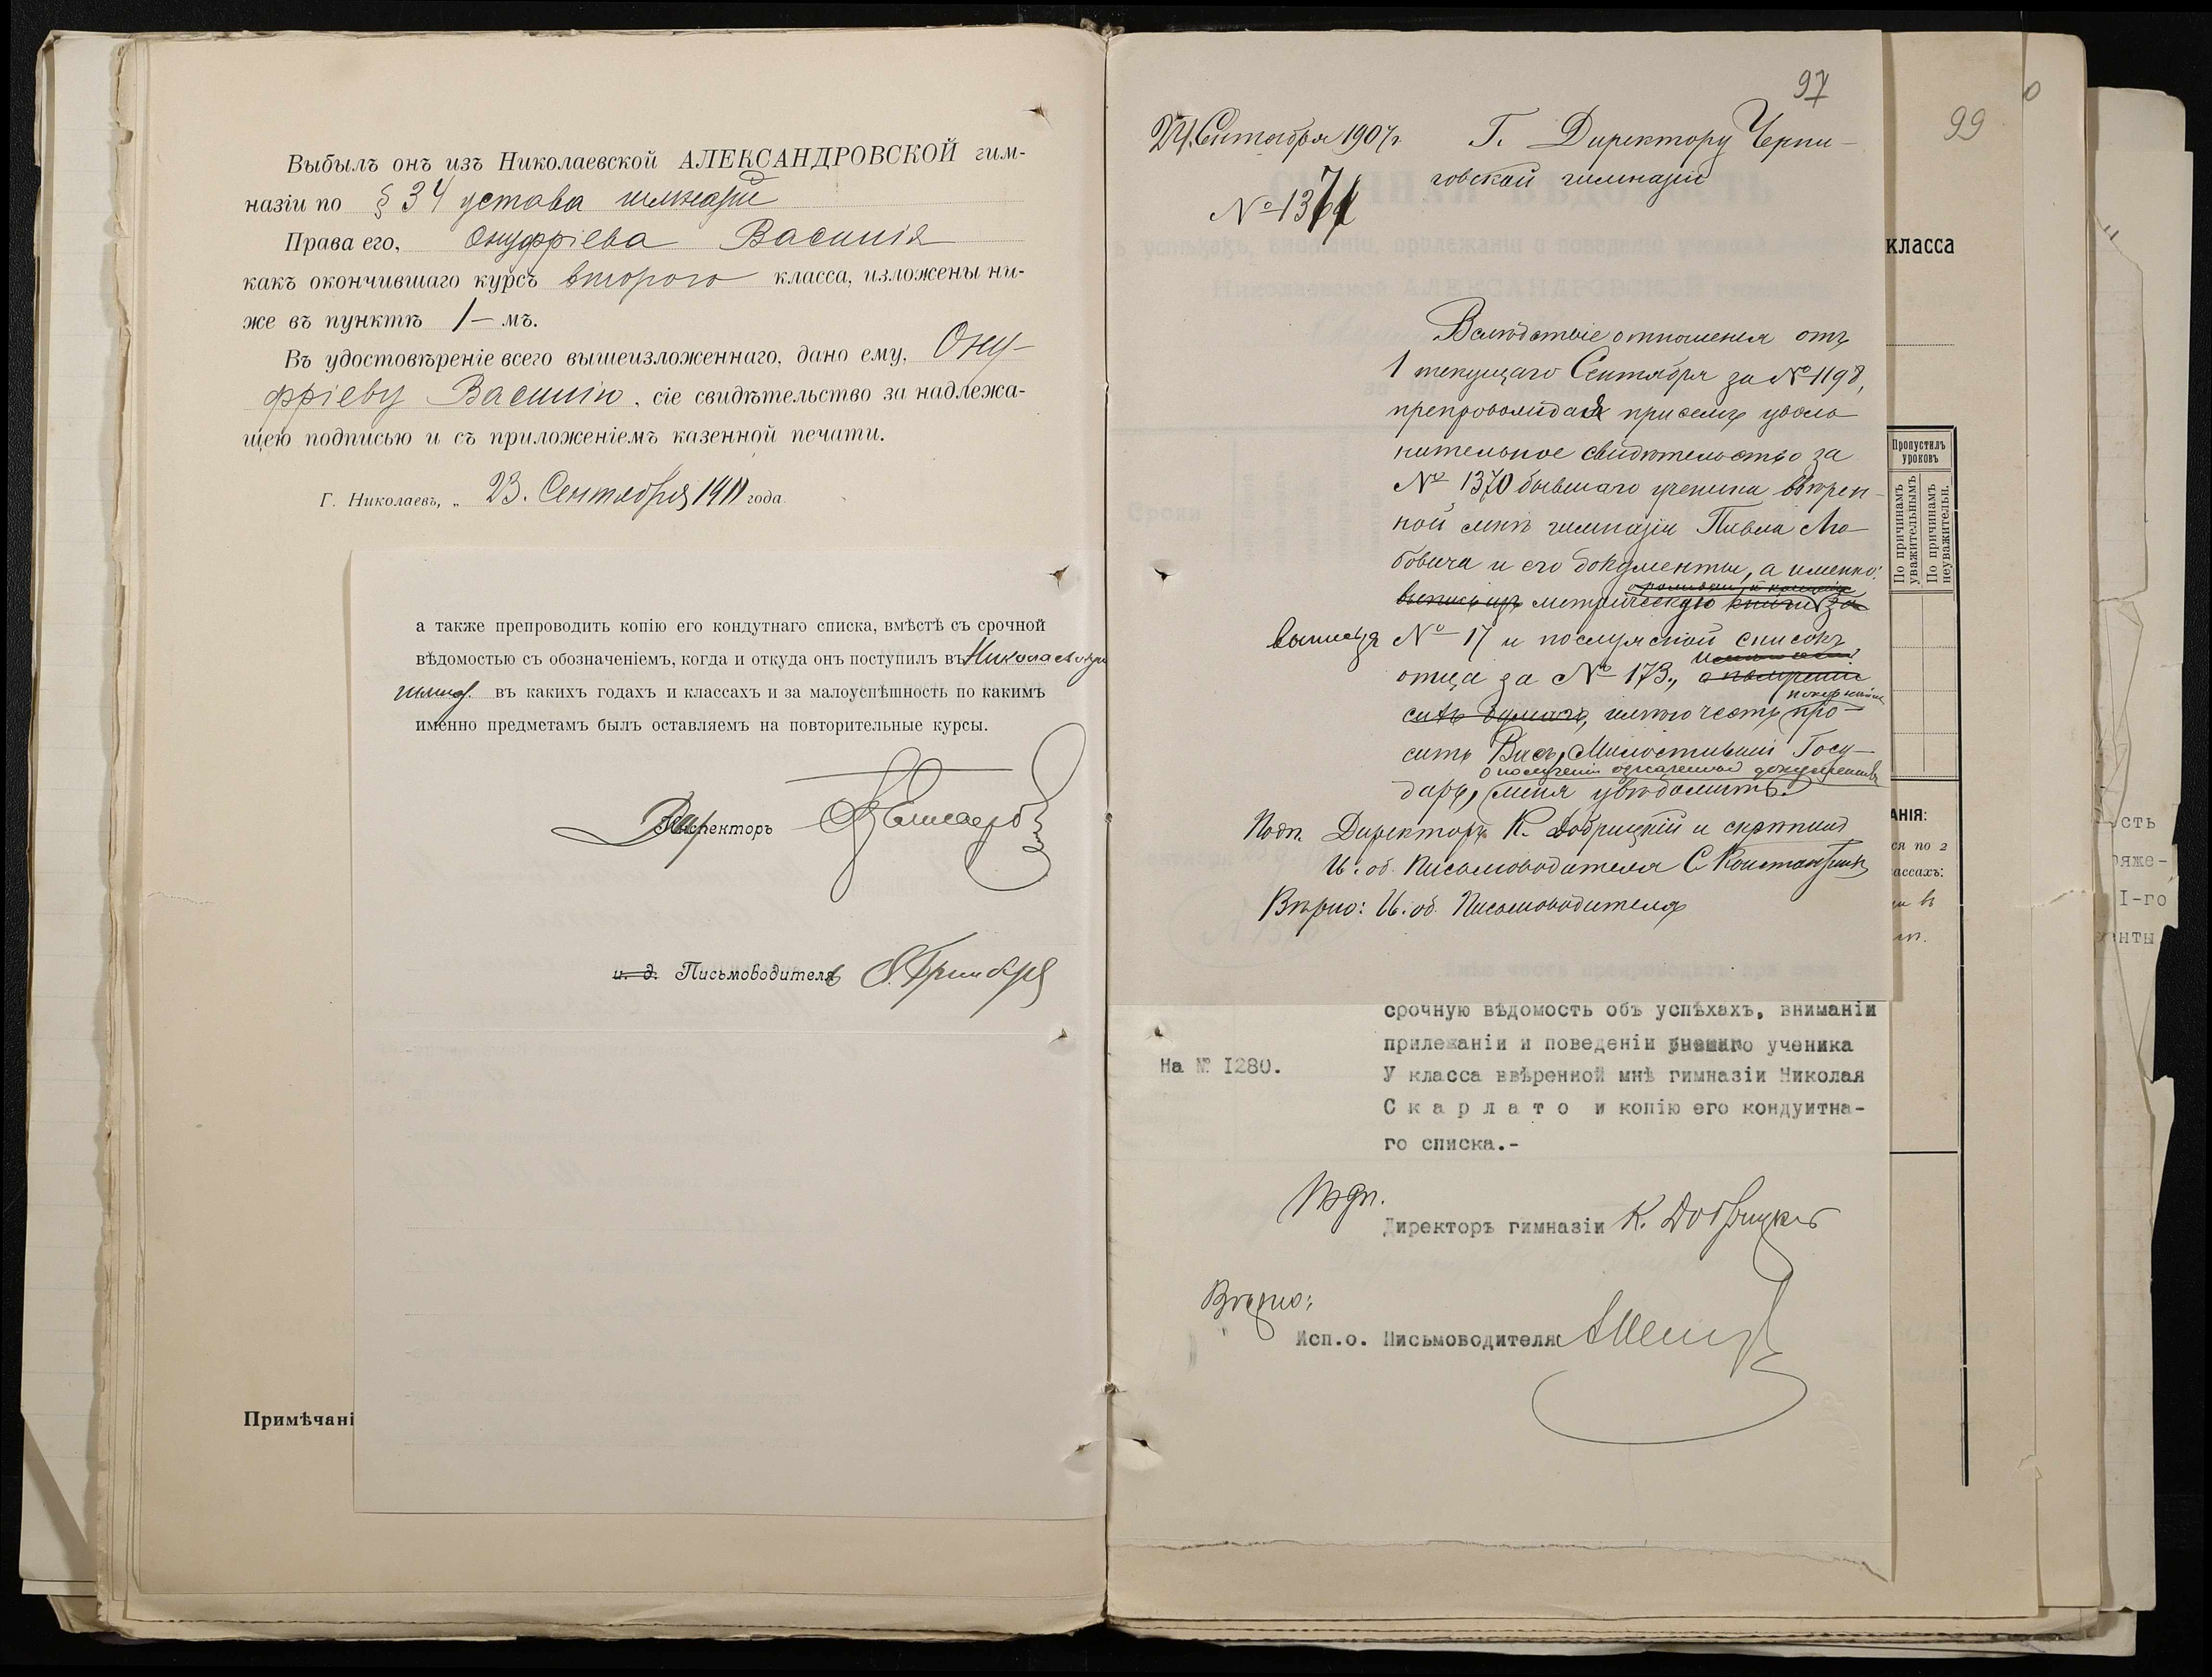 Выбылъ онъ изъ Николаевской АЛЕКСАНДРОВСКОЙ гим-
назіи по § 34 устава гимназій
Права его, Онуфріева Василія
какъ окончившаго курсъ второго класса, изложены ни-
же въ пунктѣ 1-мъ.
Въ удостовѣреніе всего вышеизложеннаго, дано ему, Ону-
фріеву Василію, сіе свидѣтельство за надлежа-
щею подписью и съ приложеніемъ казенной печати.
Г. Николаевъ, „ 23. Сентября 1911 года.
а также препроводить копію его кондутнаго списка, вмѣстѣ съ срочной
вѣдомостью съ обозначеніемъ, когда и откуда онъ поступилъ въ
въ какихъ годахъ и классахъ и за малоуспѣшность по какимъ
именно предметамъ былъ оставляемъ на повторительные курсы.
Директоръ
и. д. Письмоводителя
Примѣчані
97
24 Сентября 1907 г.
Г. Директору Черни-
говской гимназіи
№ 1371
Вслѣдствіе отношенія отъ
1 текущаго Сентября за № 1198,
препровождая при семъ уволь-
нительное свидѣтельство за
№ 1370 бывшаго ученика ввѣрен-
ной мнѣ гимназіи Павла Лю-
бовича и его документы, а именно:
выпись изъ метрическую книги за
№ 17 и послужной списокъ
отца за № 173.,
покорнѣйше
имѣю честь про-
сить Васъ, Милостивый Госу-
о полученіи означенныхъ документовъ
дарь, меня увѣдомить.
Подп. Директоръ К. Добрицкій и скрѣпилъ
И. об. Письмоводителя С. Константинъ
Вѣрно: И. об. Письмоводителя
срочную вѣдомость объ успѣхахъ, вниманіи
прилежаніи и поведеніи бывшаго ученика
На № I280.
У класса ввѣренной мнѣ гимназіи Николая
С к а р л а т о и копію его кондуитна-
го списка.-
Подп.
Директоръ гимназіи К. Добрицкій
Вѣрно:
Исп.о. Письмоводителя
99
класса
Пропустилъ
уроковъ
По причинамъ
уважительнымъ
По причинамъ
неуважительн.
АНІЯ:
ся по 2
ассахъ:
сть
ряже-
I-го
нты